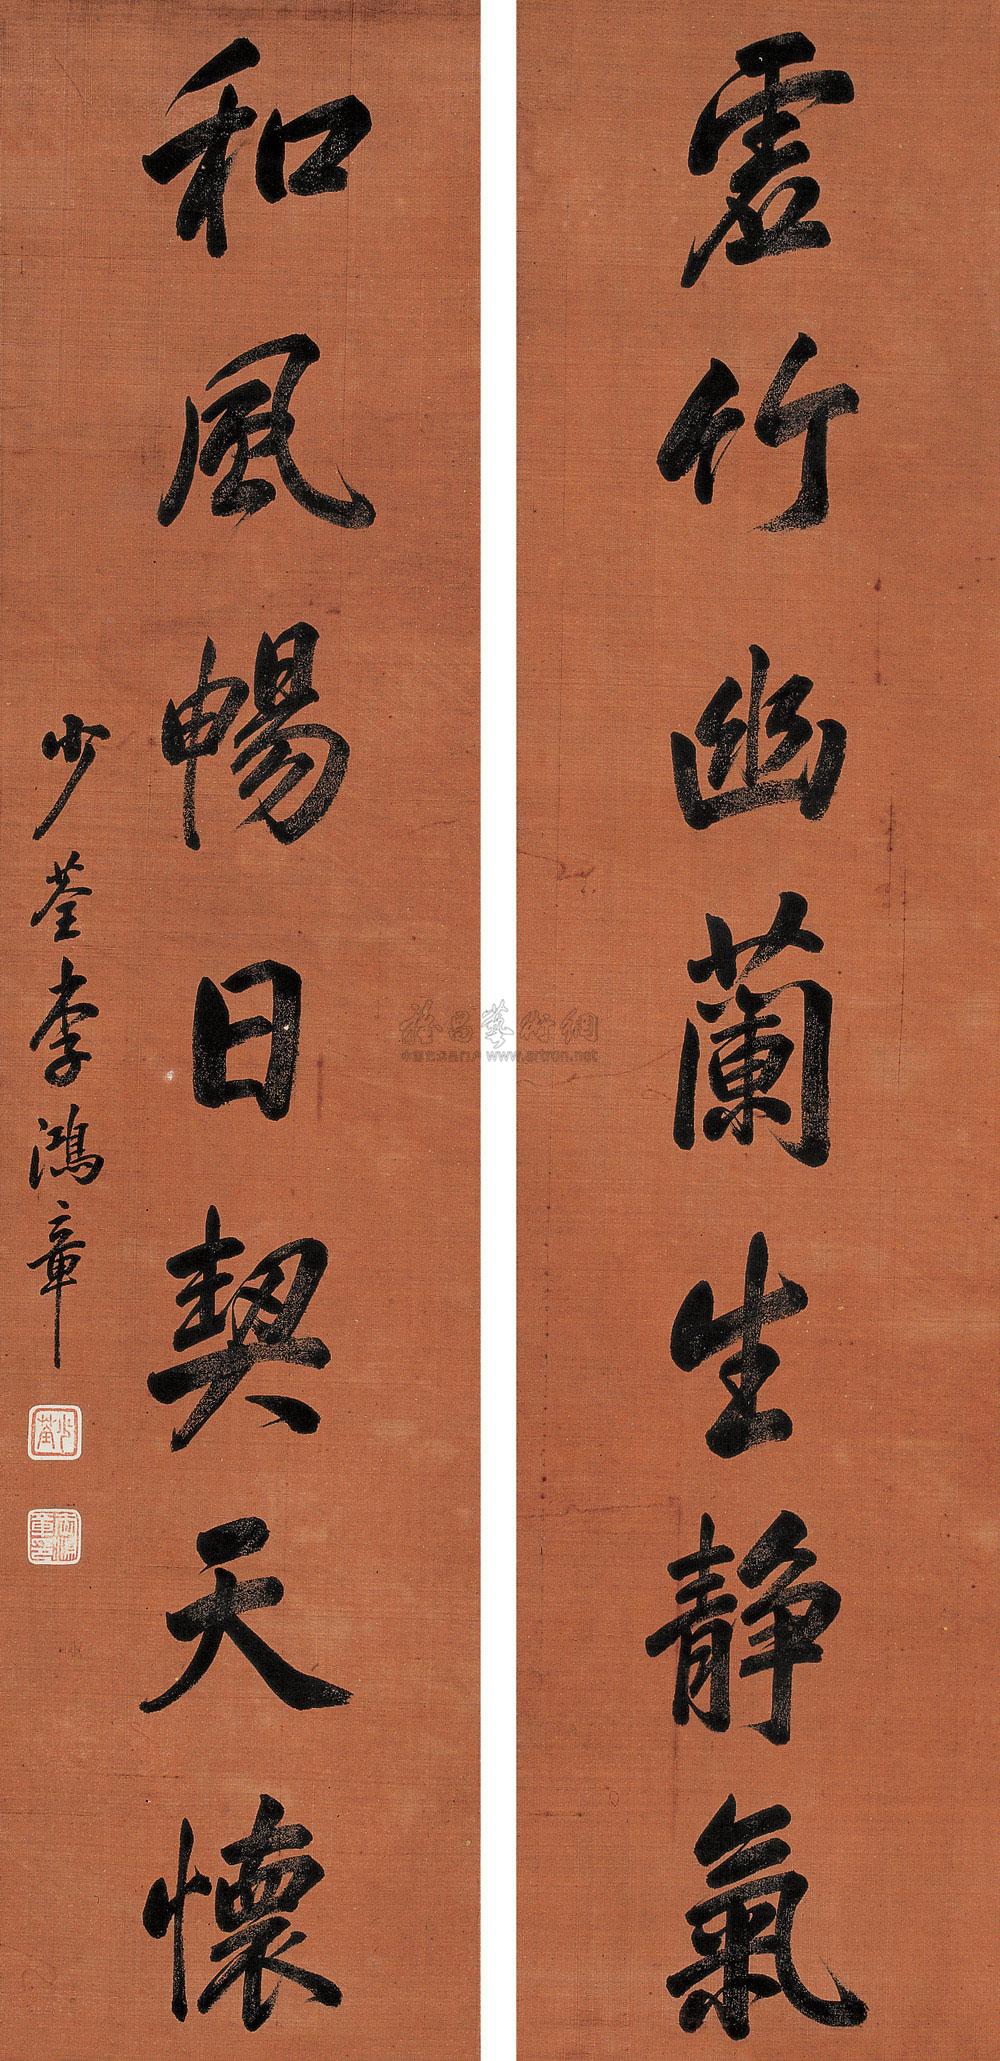 虛竹幽蘭生靜氣
和風暢日契天懷
少荃李鴻章
少荃
雅昌藝術網
www.artron.net